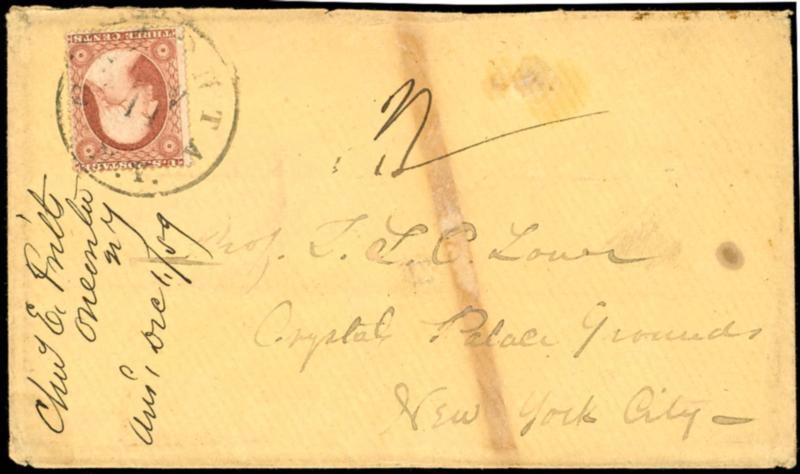 THREE CENTS
U.S. POSTAGE
Chas E. Pratt
N Y
Ans, Dec 1, /59
Prof. T. S. C. Lowe
Crystal Palace Grounds
New York City